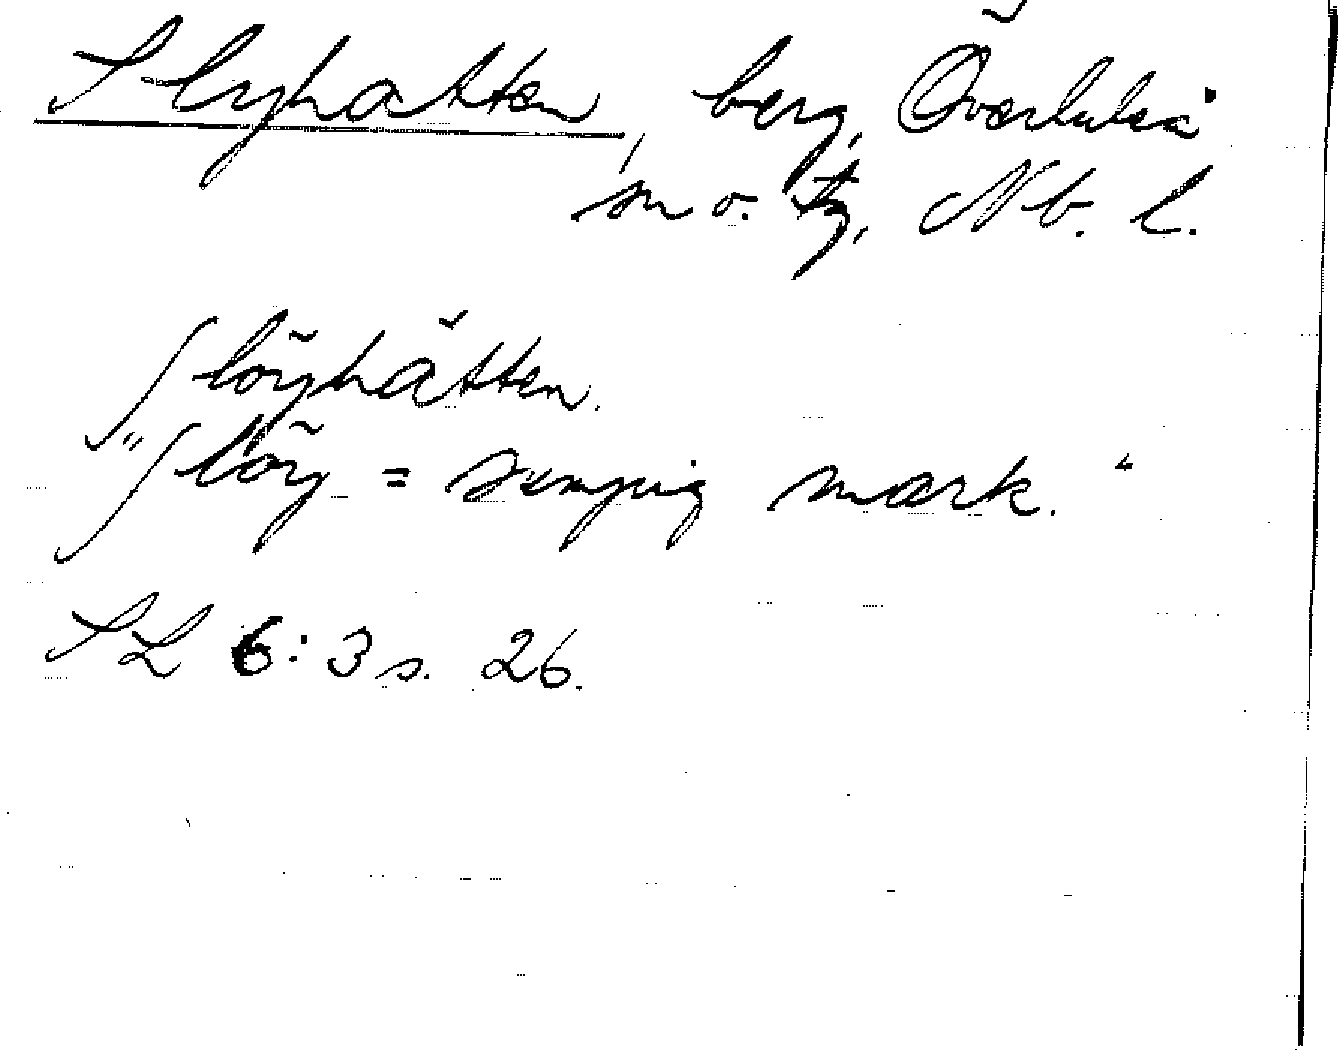 Slyhatten, berg, Överluleå
sn o. tg, Nb. l.
Slöyhåtten.
"Slöy = sumpig mark."
SL 6:3 s. 26.